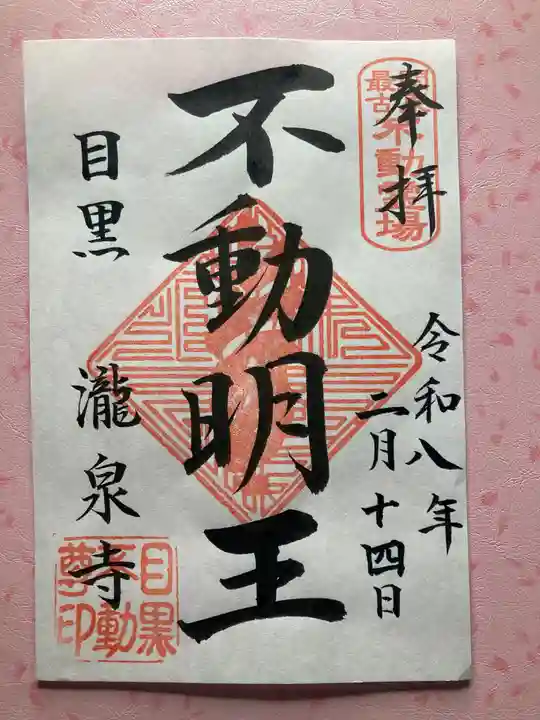 奉拝
関東最古不動霊場
令和八年
二月十四日
不動明王
目黒 瀧泉寺
目黒不動尊印